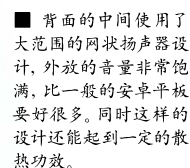 ■ 背面的中间使用了
大范围的网状扬声器设
计，外放的音量非常饱
满，比一般的安卓平板
要好很多。同时这样的
设计还能起到一定的散
热功效。